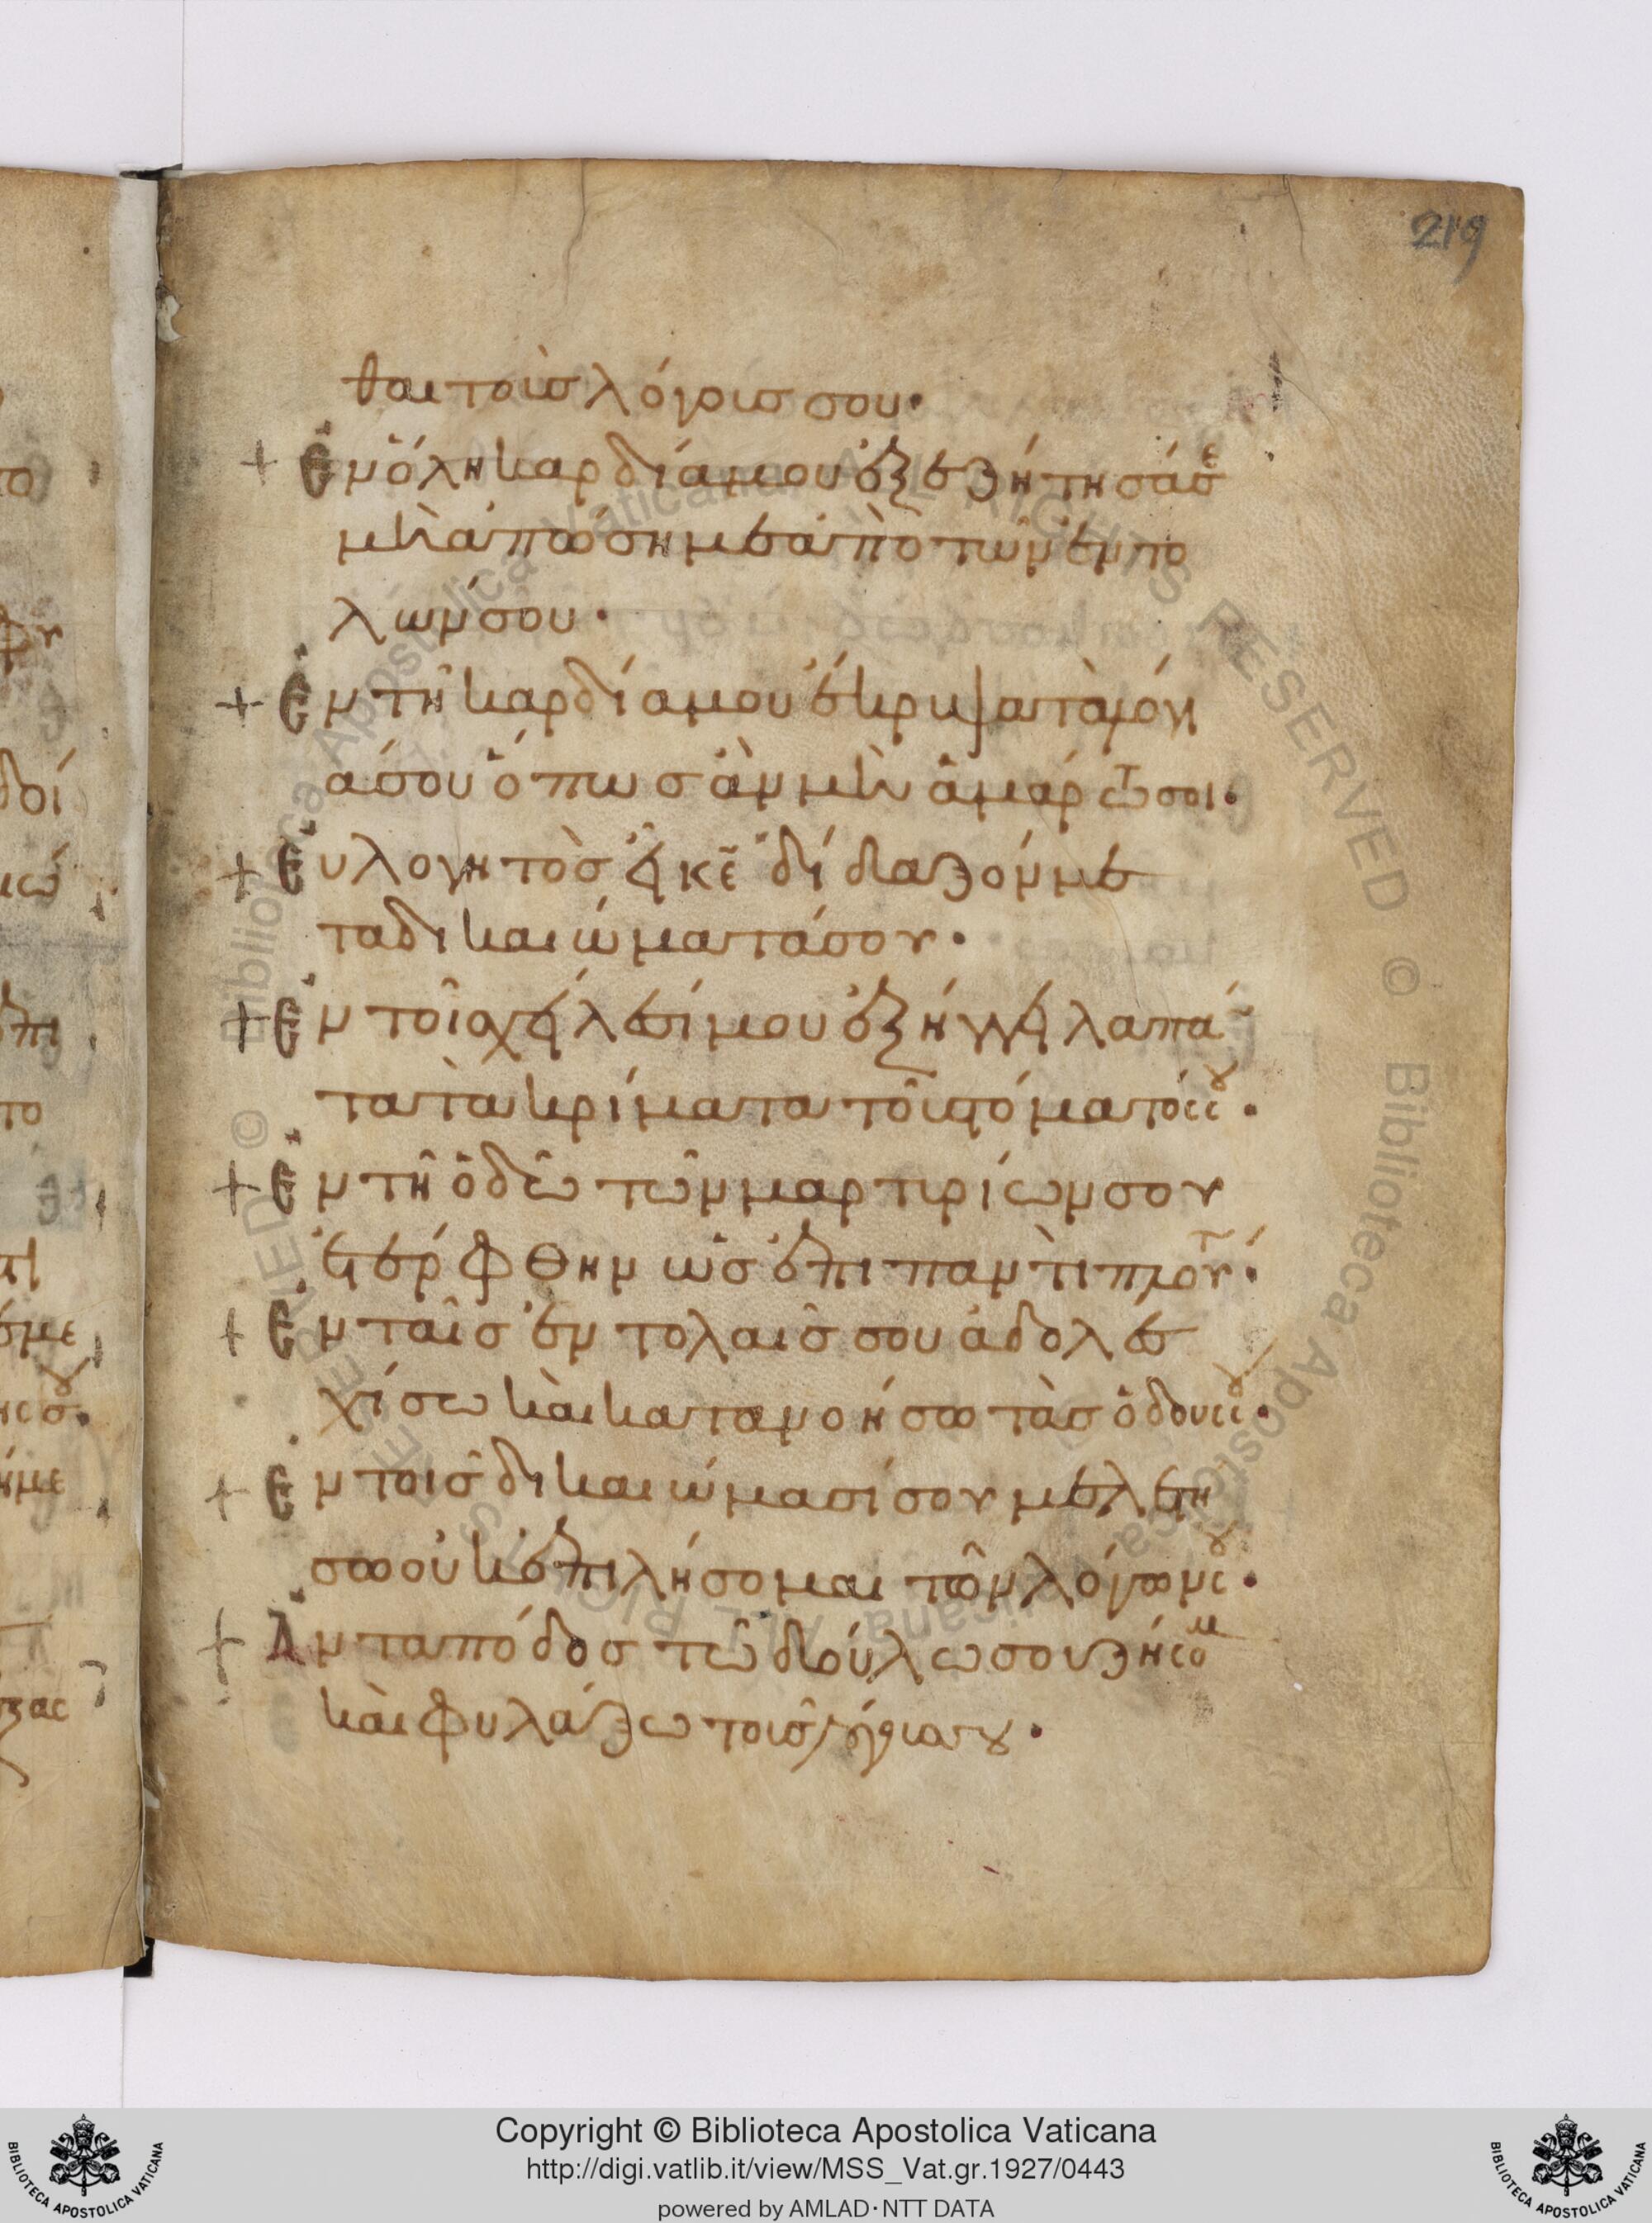 219
θαι τοὺσ λόγουσ σου·
+ Ἐν ὅλη καρδία μου ἐξεζήτησά σε
μὴ ἀπώση με ἀπὸ τῶν ἐντο
λων σου·
+ Ἐν τῆ καρδία μου ἔκρυψα τὰ λόγι
α σου ὅπωσ ἂν μὴ ἁμάρτω σοι·
+ Εὐλογητὸσ εἶ κε δίδαξόν με
τα δικαιώματά σου·
+ Ἐν τοῖσ χείλεσί μου ἐξήγγειλα πάν
τα τὰ κρίματα τοῦ στόματόσ σου·
+ Ἐν τῆ ὁδῶ τῶν μαρτυρίων σου
ἐτέρφθην ὡσ ἐπι παντι πλούτ·
+ Ἐν ταῖσ ἐντολαῖσ σου ἀδολε
σχίσω καὶ κατανοήσω τὰσ ὁδούσ σου·
+ Ἐν τοισ δικαιώμασί σου μελετή
σω οὐκ ἐπιλήσομαι τῶν λόγων σου·
+ Ἀνταπόδοσ τῶ δούλω σου ζήσομ
καὶ φυλάξω τοὺσ λόγουσ σου·
Copyright © Biblioteca Apostolica Vaticana
http://digi.vatlib.it/view/MSS_Vat.gr.1927/0443
powered by AMLAD·NTT DATA
BIBLIOTECA APOSTOLICA VATICANA
BIBLIOTECA APOSTOLICA VATICANA